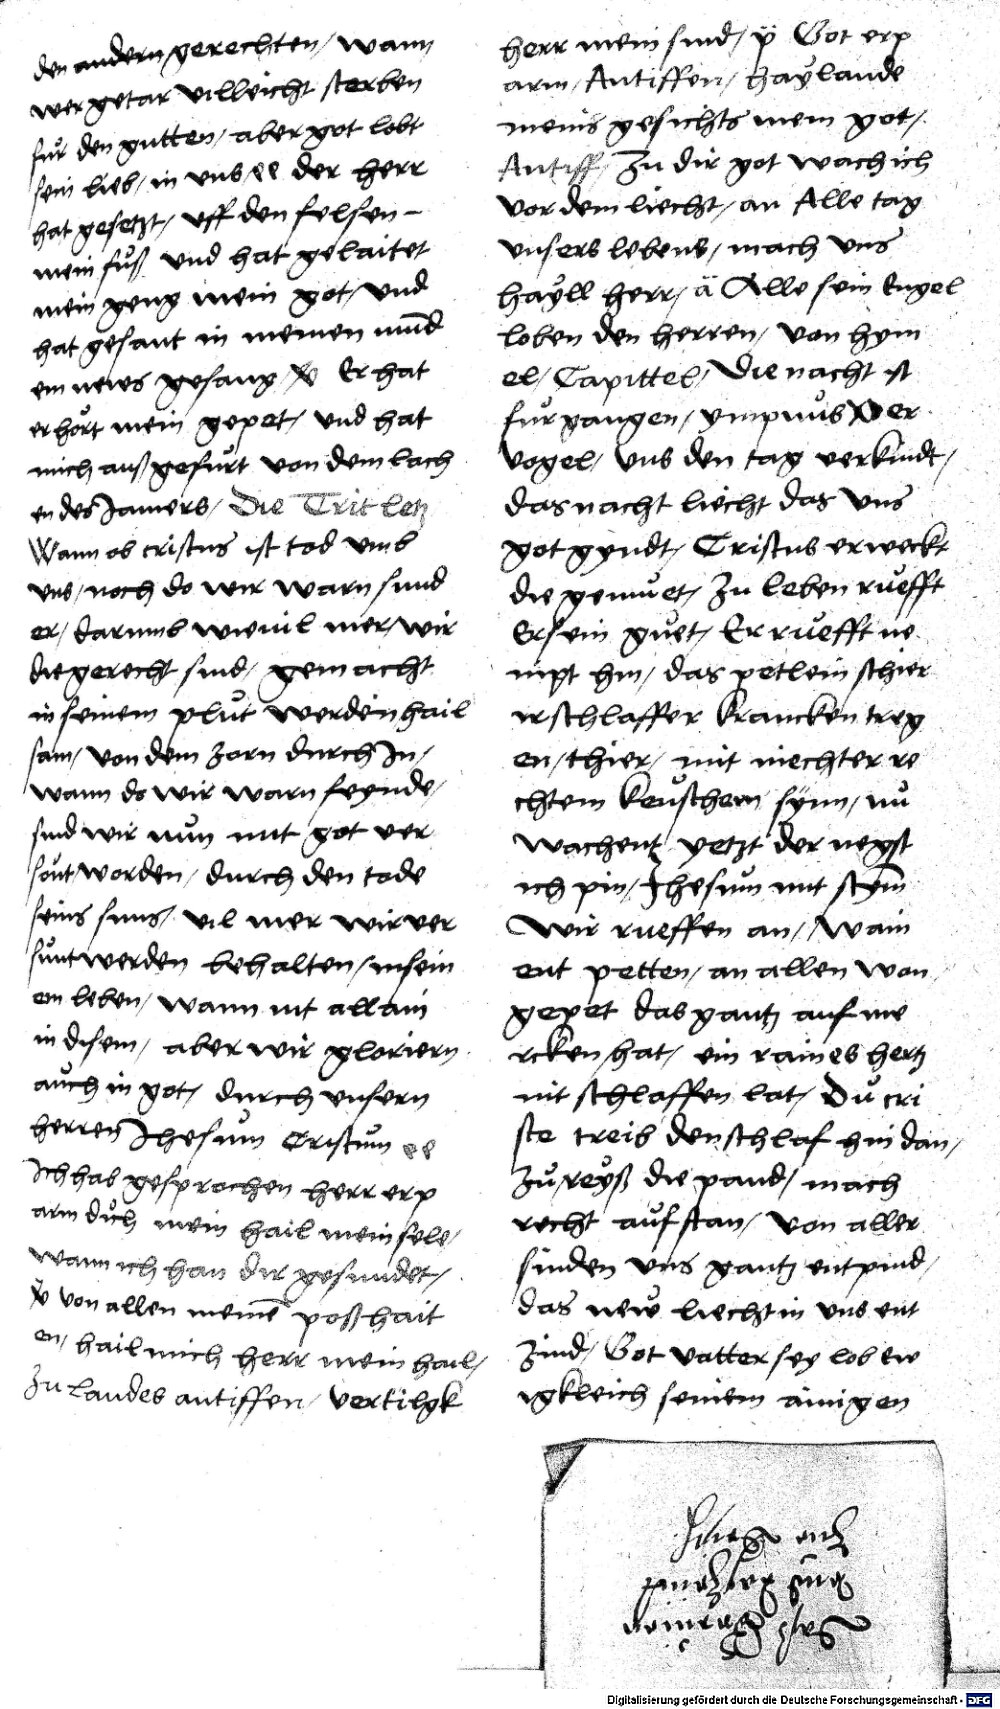 den andern gerechten / wann
wer getar villeicht sterben
fur den gutten / aber got lobt
sein lieb / in uns ee der herr
hat gesetzt / uff den felsen –
mein fuß und hat gelaitet
mein geng mein got / und
hat gesant in meinen mund
ein newes gesang Er hat
erhört mein gepet / und hat
mich auß gefurt von dem lach
en des Jamers / Die Trit letz
Wann ob cristus ist tod umb
uns / noch do wir warn sund
er / darumb wievil mer / wir
die gerecht sind / gemacht
in seinem plut werden hail
sam / von dem zorn durch In /
wann do wir warn feynde /
sind wir nun mit got ver
sont worden / durch den tode
seins suns / vil mer wir ver
sunt werden behalten / in sein
em leben / wann nit allain
in disem / aber wir gloriern
auch in got / durch unsern
herren Jhesum Cristum ee
Ich hab gesprochen herr erp
arm dich mein hail mein sele /
wann ich han dir gesundet /
von allen meinē poßhait
en / hail mich herr mein hail /
Zu landes antiffen / vertilgk
herr mein sind / ÿ Got erp
arm / Antiffen / haylande
meins gesichts mein got /
Antiff / Zu dir got wach ich
vor dem liecht / an Alle tag
unsers lebens / mach uns
hayll herr / ä Alle sein Engel
loben den herren / von hym
el / Capittel / Die nacht ist
fur gangen / ympnus Der
vogel / uns den tag verkindt /
das nacht liecht das uns
got gyndt / Cristus erweckt
die gemuet / zu leben ruefft
Er sein guet / Er ruefft ne
mpt hin / das petlein schier
ir schlaffer krancken treg
en / thier / mit niechter re
chtem keuschem synn / nu
wachent yetzt der negst
ich pin / Jhesum mit stym
Wir rueffen an / Wain
ent petten / an allen won
gepet das gantz auf me
rcken / hat / ein raines hertz
nit schlaffen lat / Du cri
ste treib den schlaf hin dan /
zu reyß die pand / mach
recht auf stan / von aller
sinden uns gantz entpind /
das new liecht in uns ent
zind / Got vatter sey lob ew
igkleich seinem ainigen
Digitalisierung gefördert durch die Deutsche Forschungsgemeinschaft - DFG